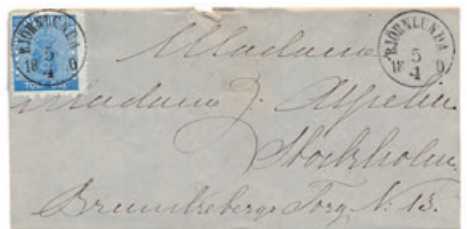 BJÖRNLUNDA
5
4
18
BJÖRNLUNDA
5
4
18 0
Madame
Madame J. Aspelin
Stockholm
Brunkebergs Torg N. 13.